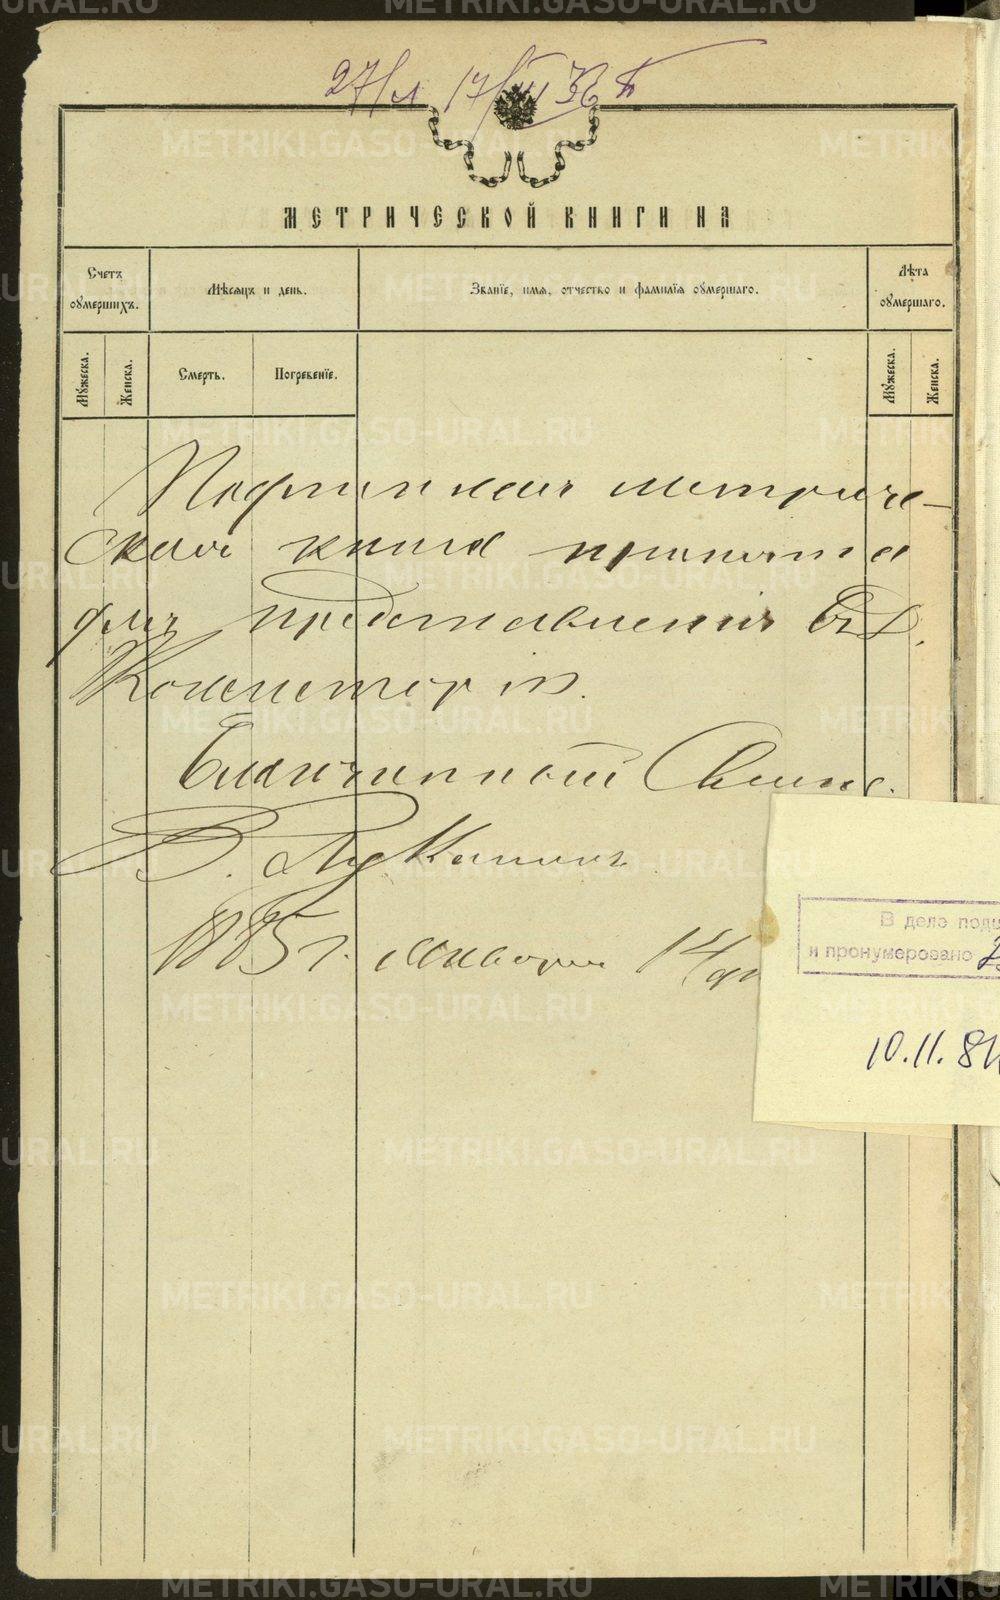 27/л 17/VII 36
МЕТРИЧЕСКОЙ КНИГИ НА
Счетъ оумершихъ.
Мѣсяцъ и день.
Званїе, имя, отчество и фамилїя оумершаго.
Лѣта оумершаго.
Мужеска.
Женска.
Смерть.
Погребенїе.
Мужеска.
Женска.
Подлинная метриче-
ская книга принята
для представленія въ Д.
Консисторію.
Благочинный Свящ.
В. Лукановъ
1885 г. января 14 дн
В дело подш
и пронумеровано
10.11.81
METRIKI.GASO-URAL.RU